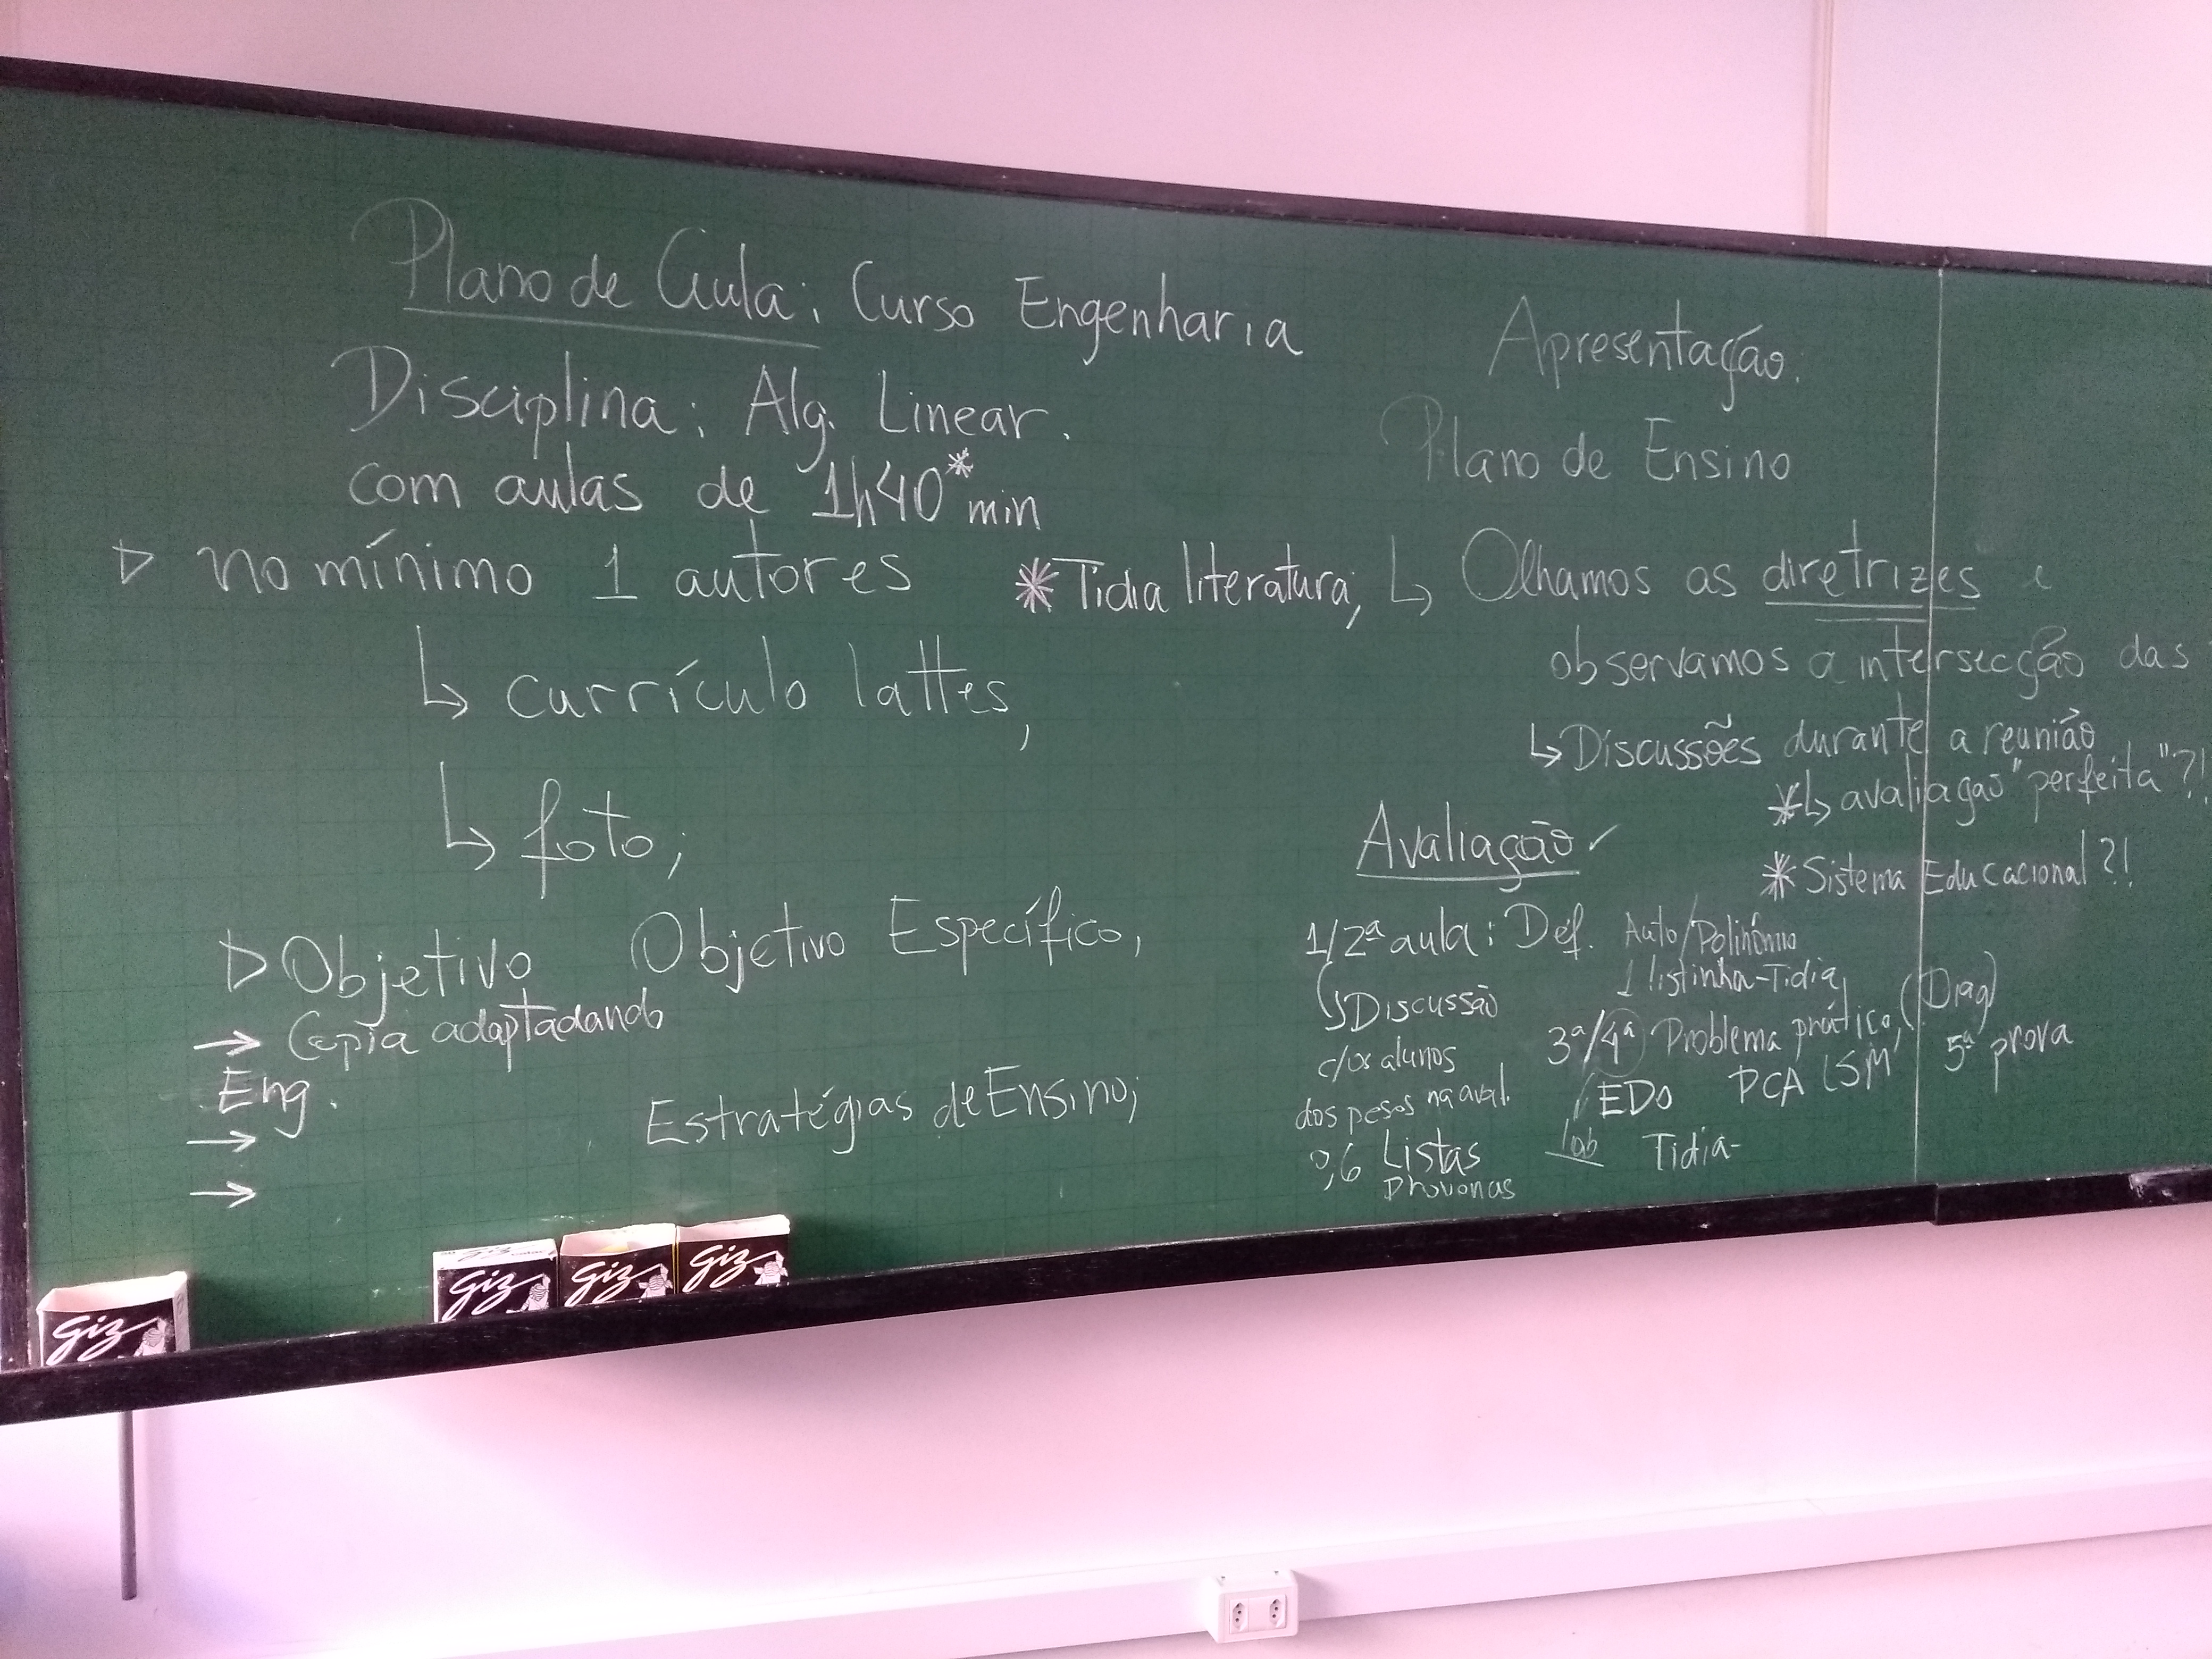 Plano de Aula: Curso Engenharia
Disciplina: Alg. Linear.
com aulas de 1h40* min
▷ no mínimo 1 autores
* Tidia literatura,
↳ currículo lattes,
↳ foto;
▷ Objetivo Objetivo Específico,
→ Copia adaptadando
Eng.
→
→
Estratégias de Ensino;
Apresentação:
Plano de Ensino
↳ Olhamos as diretrizes e
observamos a intersecção das
↳ Discussões durante a reunião
*↳ avaliaçao "perfeita"?!
* Sistema Educacional?!
Avaliação ✓
1/2ª aula: Def. Auto/Polinômio
1 listinha-Tidia
↳ Discussão
c/os alunos
dos pesos na aval.
0,6 Listas
Provonas
3ª/4ª Problema prático, (Diag)
EDO PCA LSM
lab Tidia-
5ª prova
giz
giz
giz
giz